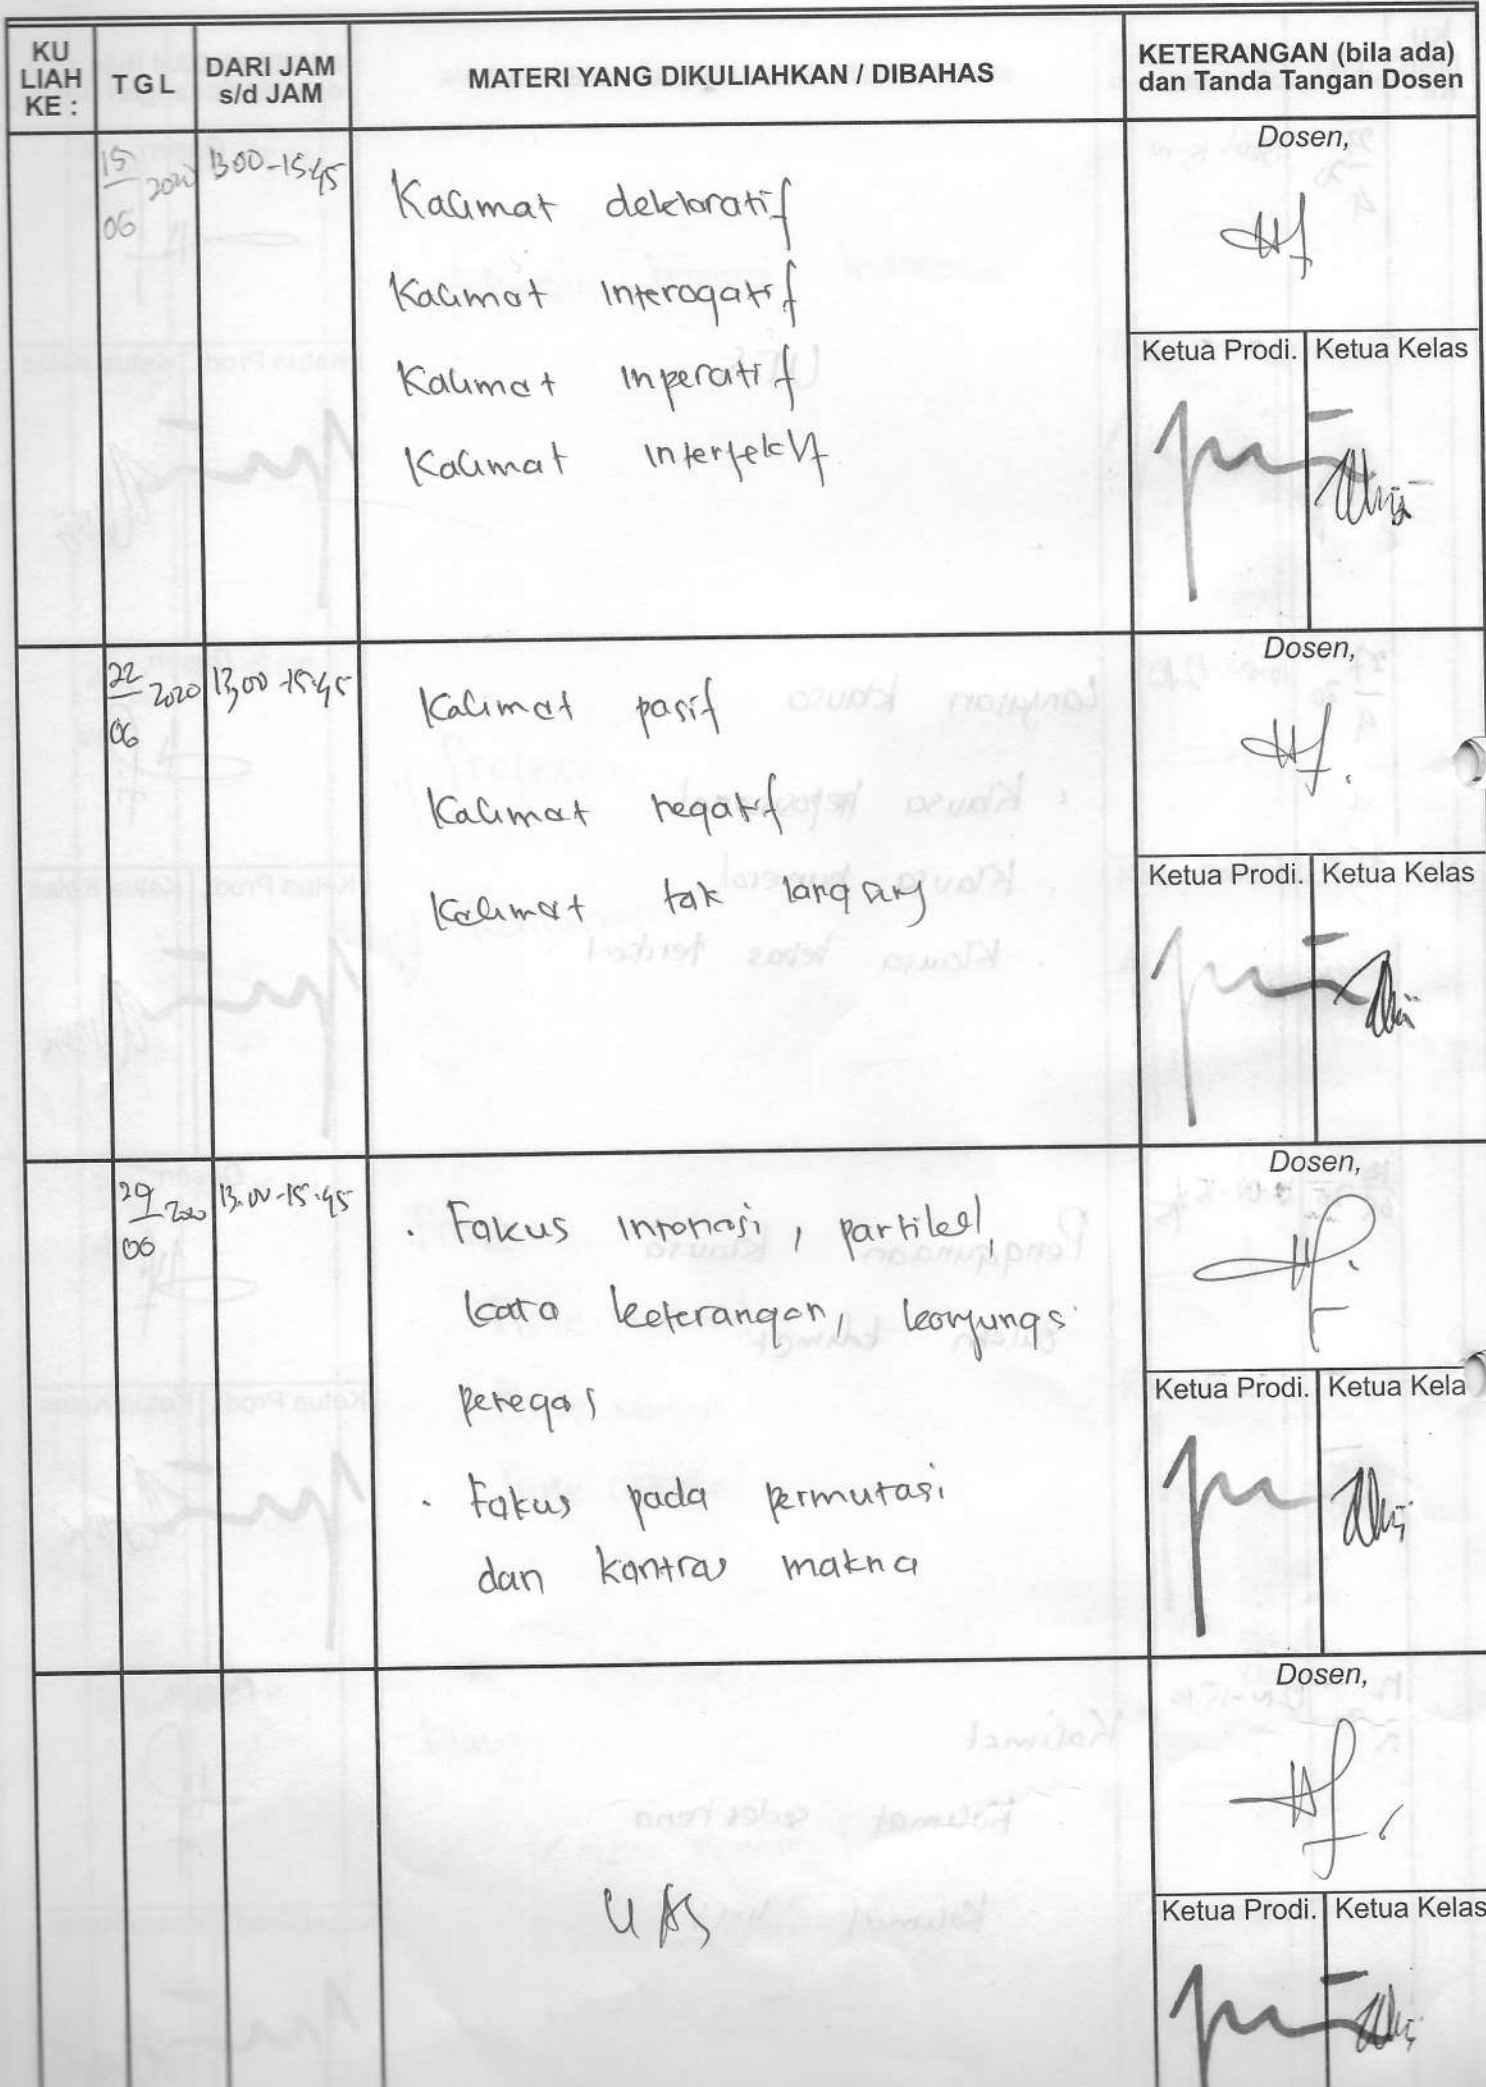 KU LIAH KE : TGL DARI JAM s/d JAM MATERI YANG DIKULIAHKAN / DIBAHAS KETERANGAN (bila ada) dan Tanda Tangan Dosen
15/06 2020 13.00-15.45
Kalimat deklaratif
Kalimat interogatif
Kalimat inperatif
Kalimat interjektif
Dosen,
Ketua Prodi. Ketua Kelas
22/06 2020 13,00-15.45
Kalimat pasif
Kalimat negatif
Kalimat tak langsung
Dosen,
Ketua Prodi. Ketua Kelas
29/06 2020 13.00-15.45
. Fokus intonasi, partikel,
kata keterangan, konjungsi
penegas
. Fokus pada permutasi
dan kontras makna
Dosen,
Ketua Prodi. Ketua Kela
UAS
Dosen,
Ketua Prodi. Ketua Kelas